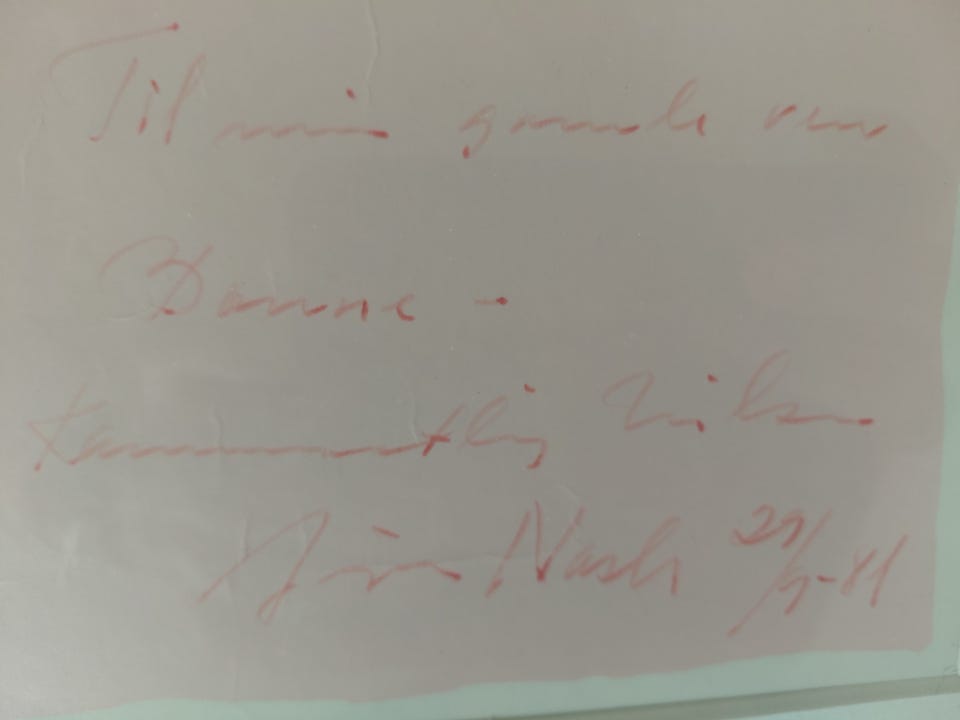 Til min gamle ven
Bonne -
Kammeratlig hilsen
Jørn Nash 29/9-81